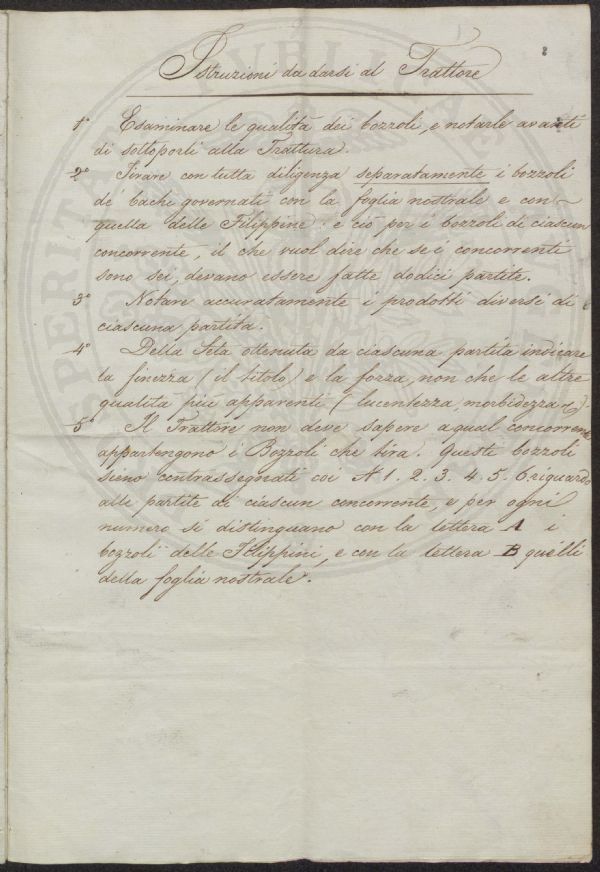 Istruzioni da darsi al Trattore
1° Esaminare le qualità dei bozzoli, e notarle avanti
di sottoporli alla Trattura.
2° Tirare con tutta diligenza separatamente i bozzoli
de' bachi governati con la foglia nostrale e con
quella delle Filippine: e ciò per i bozzoli di ciascun
concorrente, il che vuol dire che se i concorrenti
sono sei, devano essere fatte dodici partite.
3° Notare accuratamente i prodotti diversi di
ciascuna partita.
4° Della Seta ottenuta da ciascuna partita indicare
la finezza (il titolo) e la forza, non che le altre
qualità più apparenti (lucentezza, morbidezza &)
5° Il Trattore non deve sapere a qual concorrente
appartengono i Bozzoli che tira. Questi bozzoli
sieno contrassegnati coi N 1. 2. 3. 4. 5. 6. riguardo
alle partite di ciascun concorrente, e per ogni
numero si distinguano con la lettera A i
bozzoli delle Filippini, e con la lettera B quelli
della foglia nostrale.